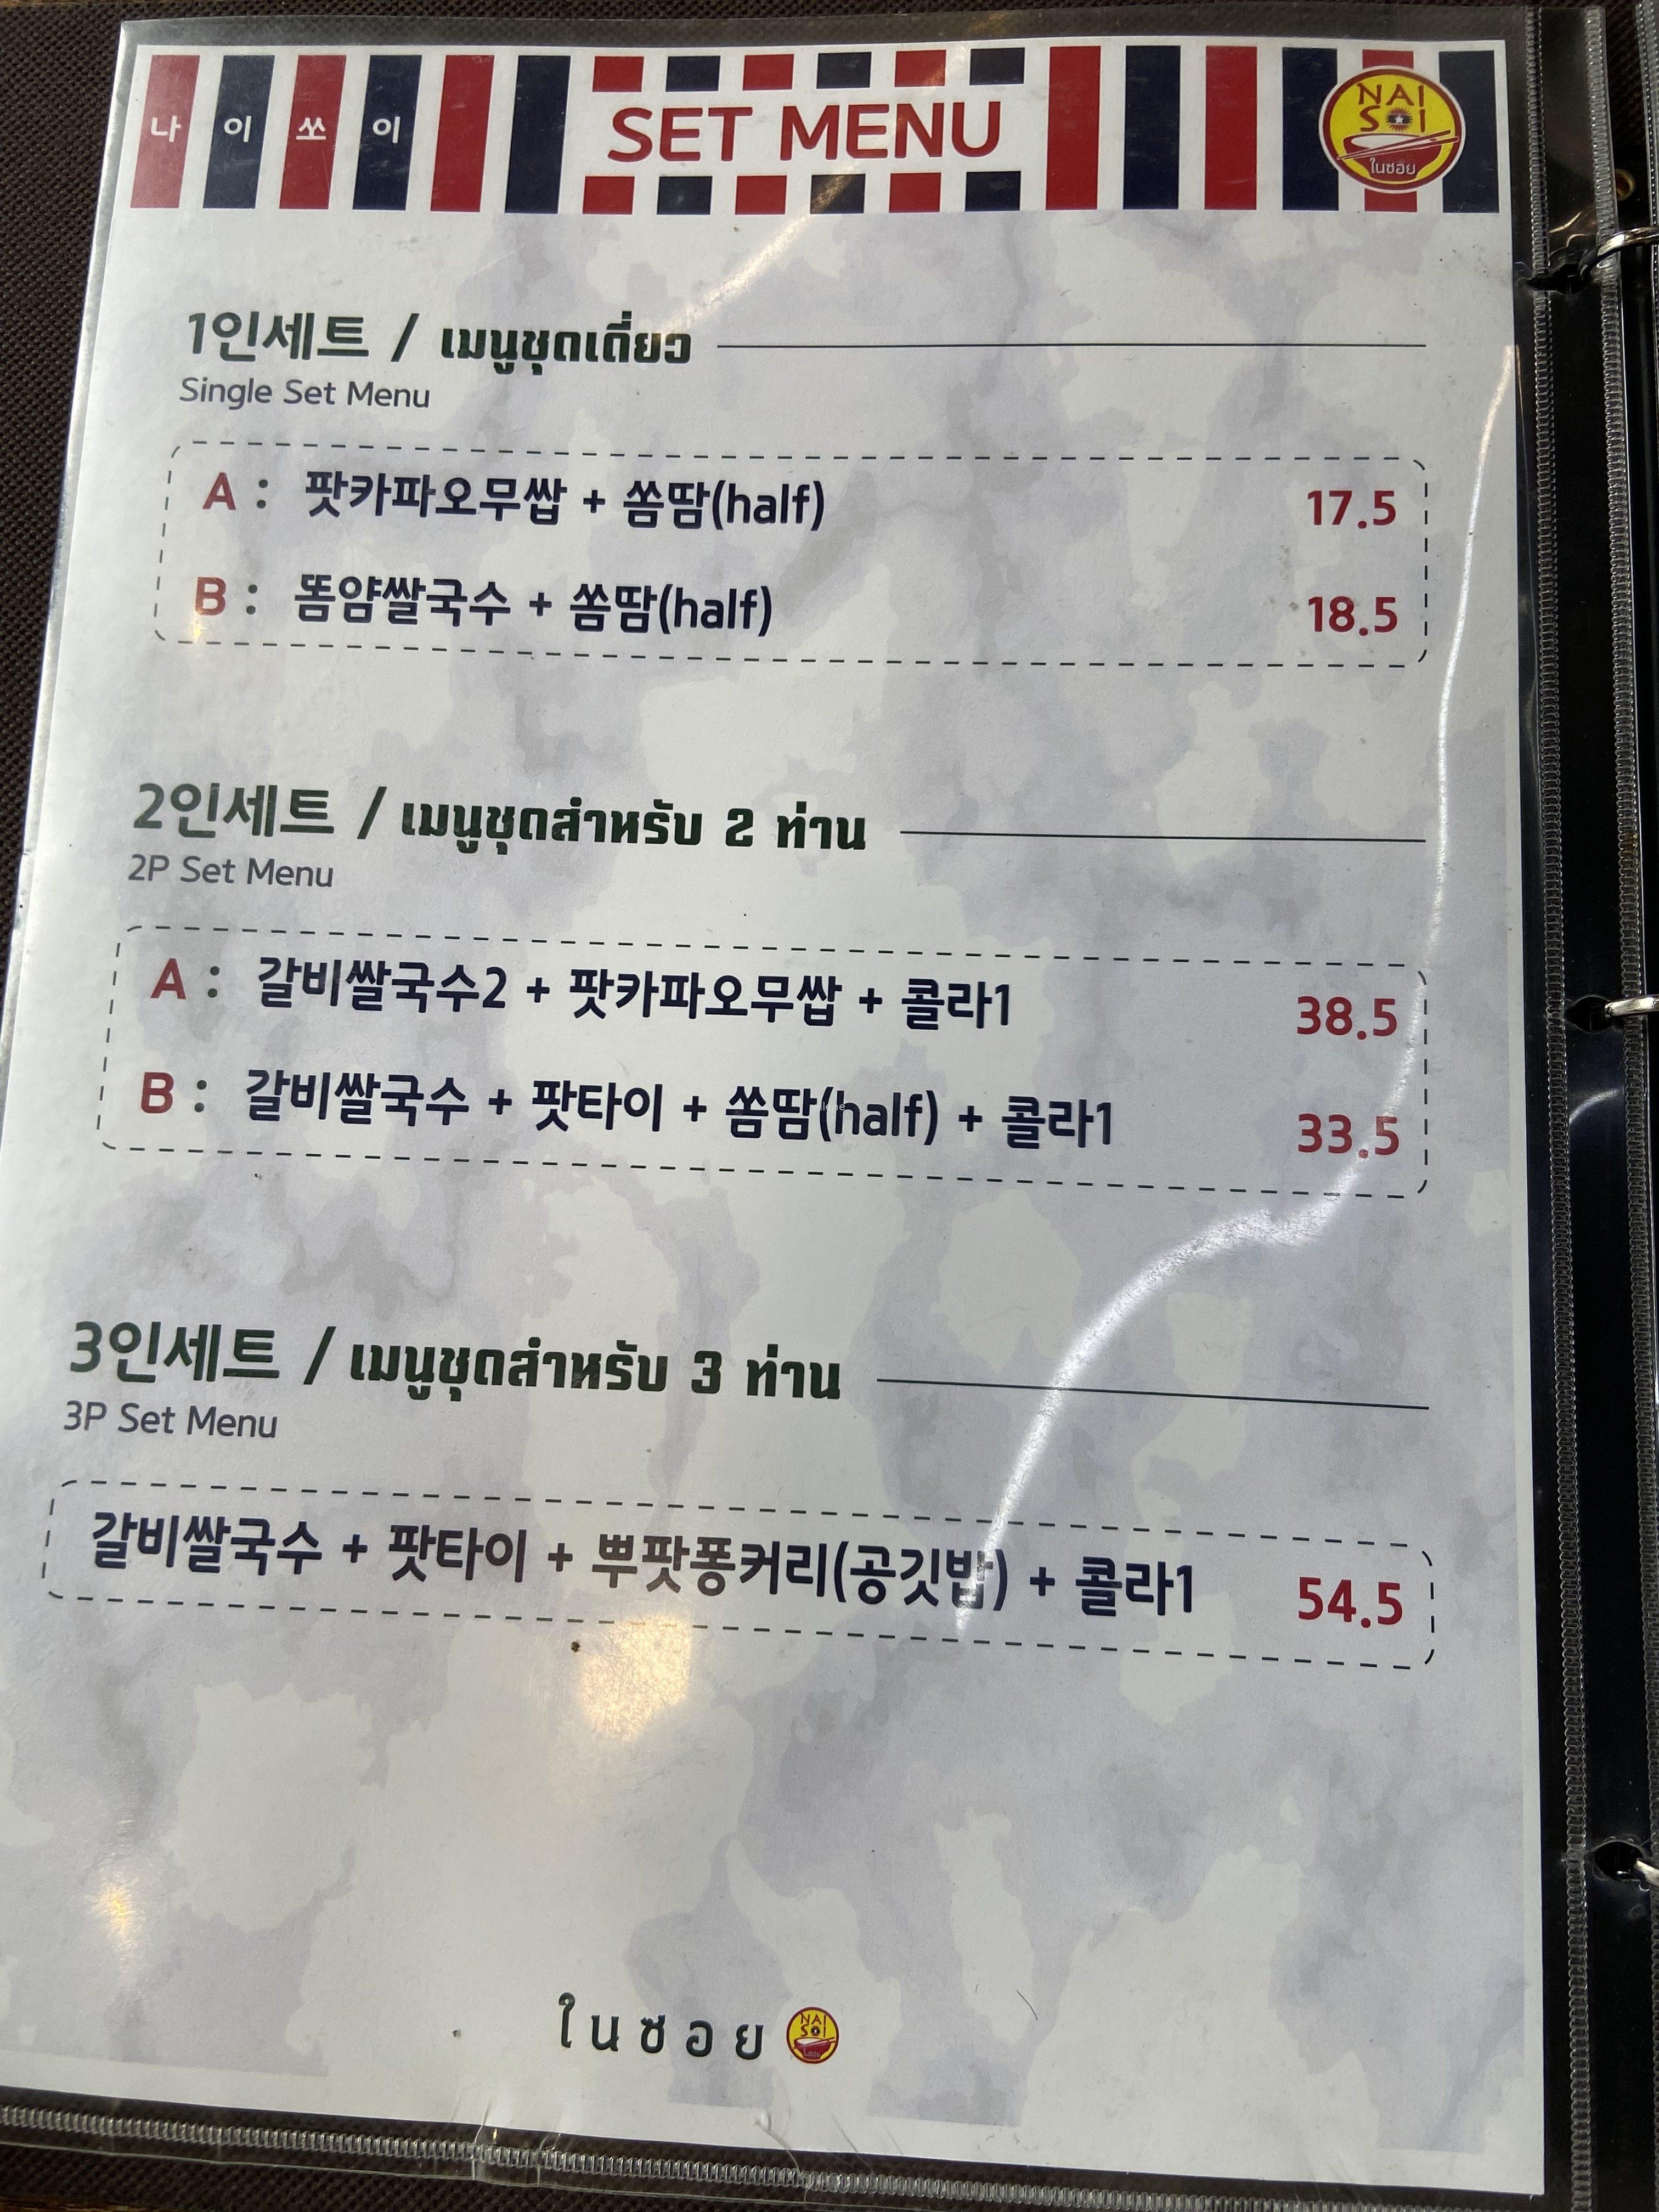 나 이 쏘 이
SET MENU
NAI
SOI
ในซอย
1인세트 / เมนูชุดเดี่ยว
Single Set Menu
A : 팟카파오무쌉 + 쏨땀(half) 17.5
B : 똠얌쌀국수 + 쏨땀(half) 18.5
2인세트 / เมนูชุดสำหรับ 2 ท่าน
2P Set Menu
A : 갈비쌀국수2 + 팟카파오무쌉 + 콜라1 38.5
B : 갈비쌀국수 + 팟타이 + 쏨땀(half) + 콜라1 33.5
3인세트 / เมนูชุดสำหรับ 3 ท่าน
3P Set Menu
갈비쌀국수 + 팟타이 + 뿌팟퐁커리(공깃밥) + 콜라1 54.5
ในซอย
NAI
SOI